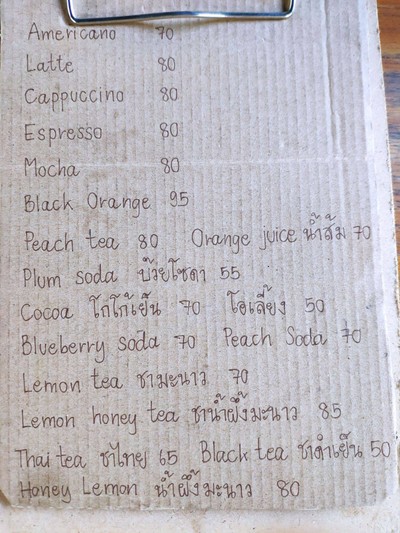 Americano 70
Latte 80
Cappuccino 80
Espresso 80
Mocha 80
Black Orange 95
Peach tea 80 Orange juice น้ำส้ม 70
Plum soda บ๊วยโซดา 55
Cocoa โกโก้เย็น 70 โอเลี้ยง 50
Blueberry soda 70 Peach Soda 70
Lemon tea ชามะนาว 70
Lemon honey tea ชาน้ำผึ้งมะนาว 85
Thai tea ชาไทย 65 Black tea ชาดำเย็น 50
Honey Lemon น้ำผึ้งมะนาว 80